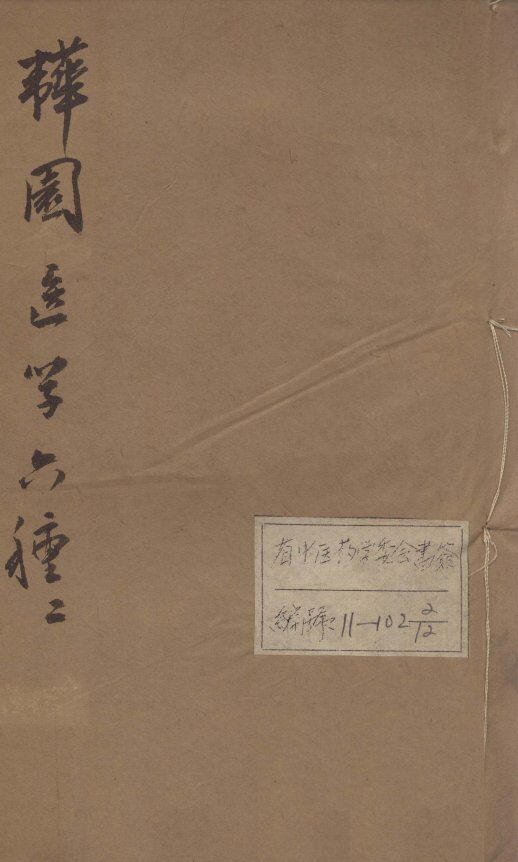 韡園医学六種二
省中医药学委会書籍
編號11-102 2/12